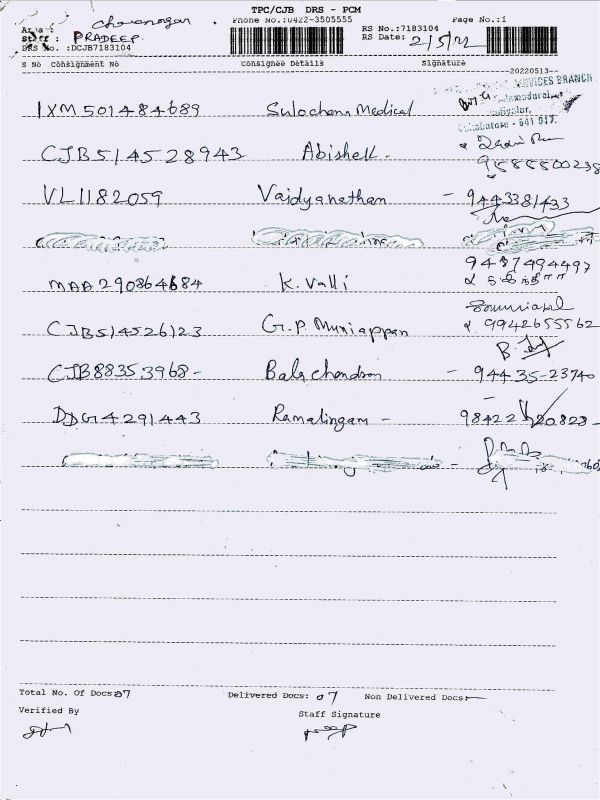 TPC/CJB DRS - PCM
Phone No.:0422-3505555 Page No.:1
Area :
Staff : PRADEEP. RS No.:7183104
DRS No. :DCJB7183104 RS Date: 2/5/22
S No Consignment No Consignee Details Signature
20220513
SERVICES BRANCH
Coimbatore - 641 017.
IXM501484689 Sulochana Medical
CJB514528943 Abishek 9585500238
VL1182059 Vaidyanathan - 9443381433
9437494497
MAA290864684 K. Valli
CJB514526123 G.P. Muniappan 9942655562
CJB88353968 - Balachandran - 94435-23740
DDG4291443 Ramalingam - 98422 20828 -
Total No. Of Docs: 07 Delivered Docs: 07 Non Delivered Docs: -
Verified By Staff Signature